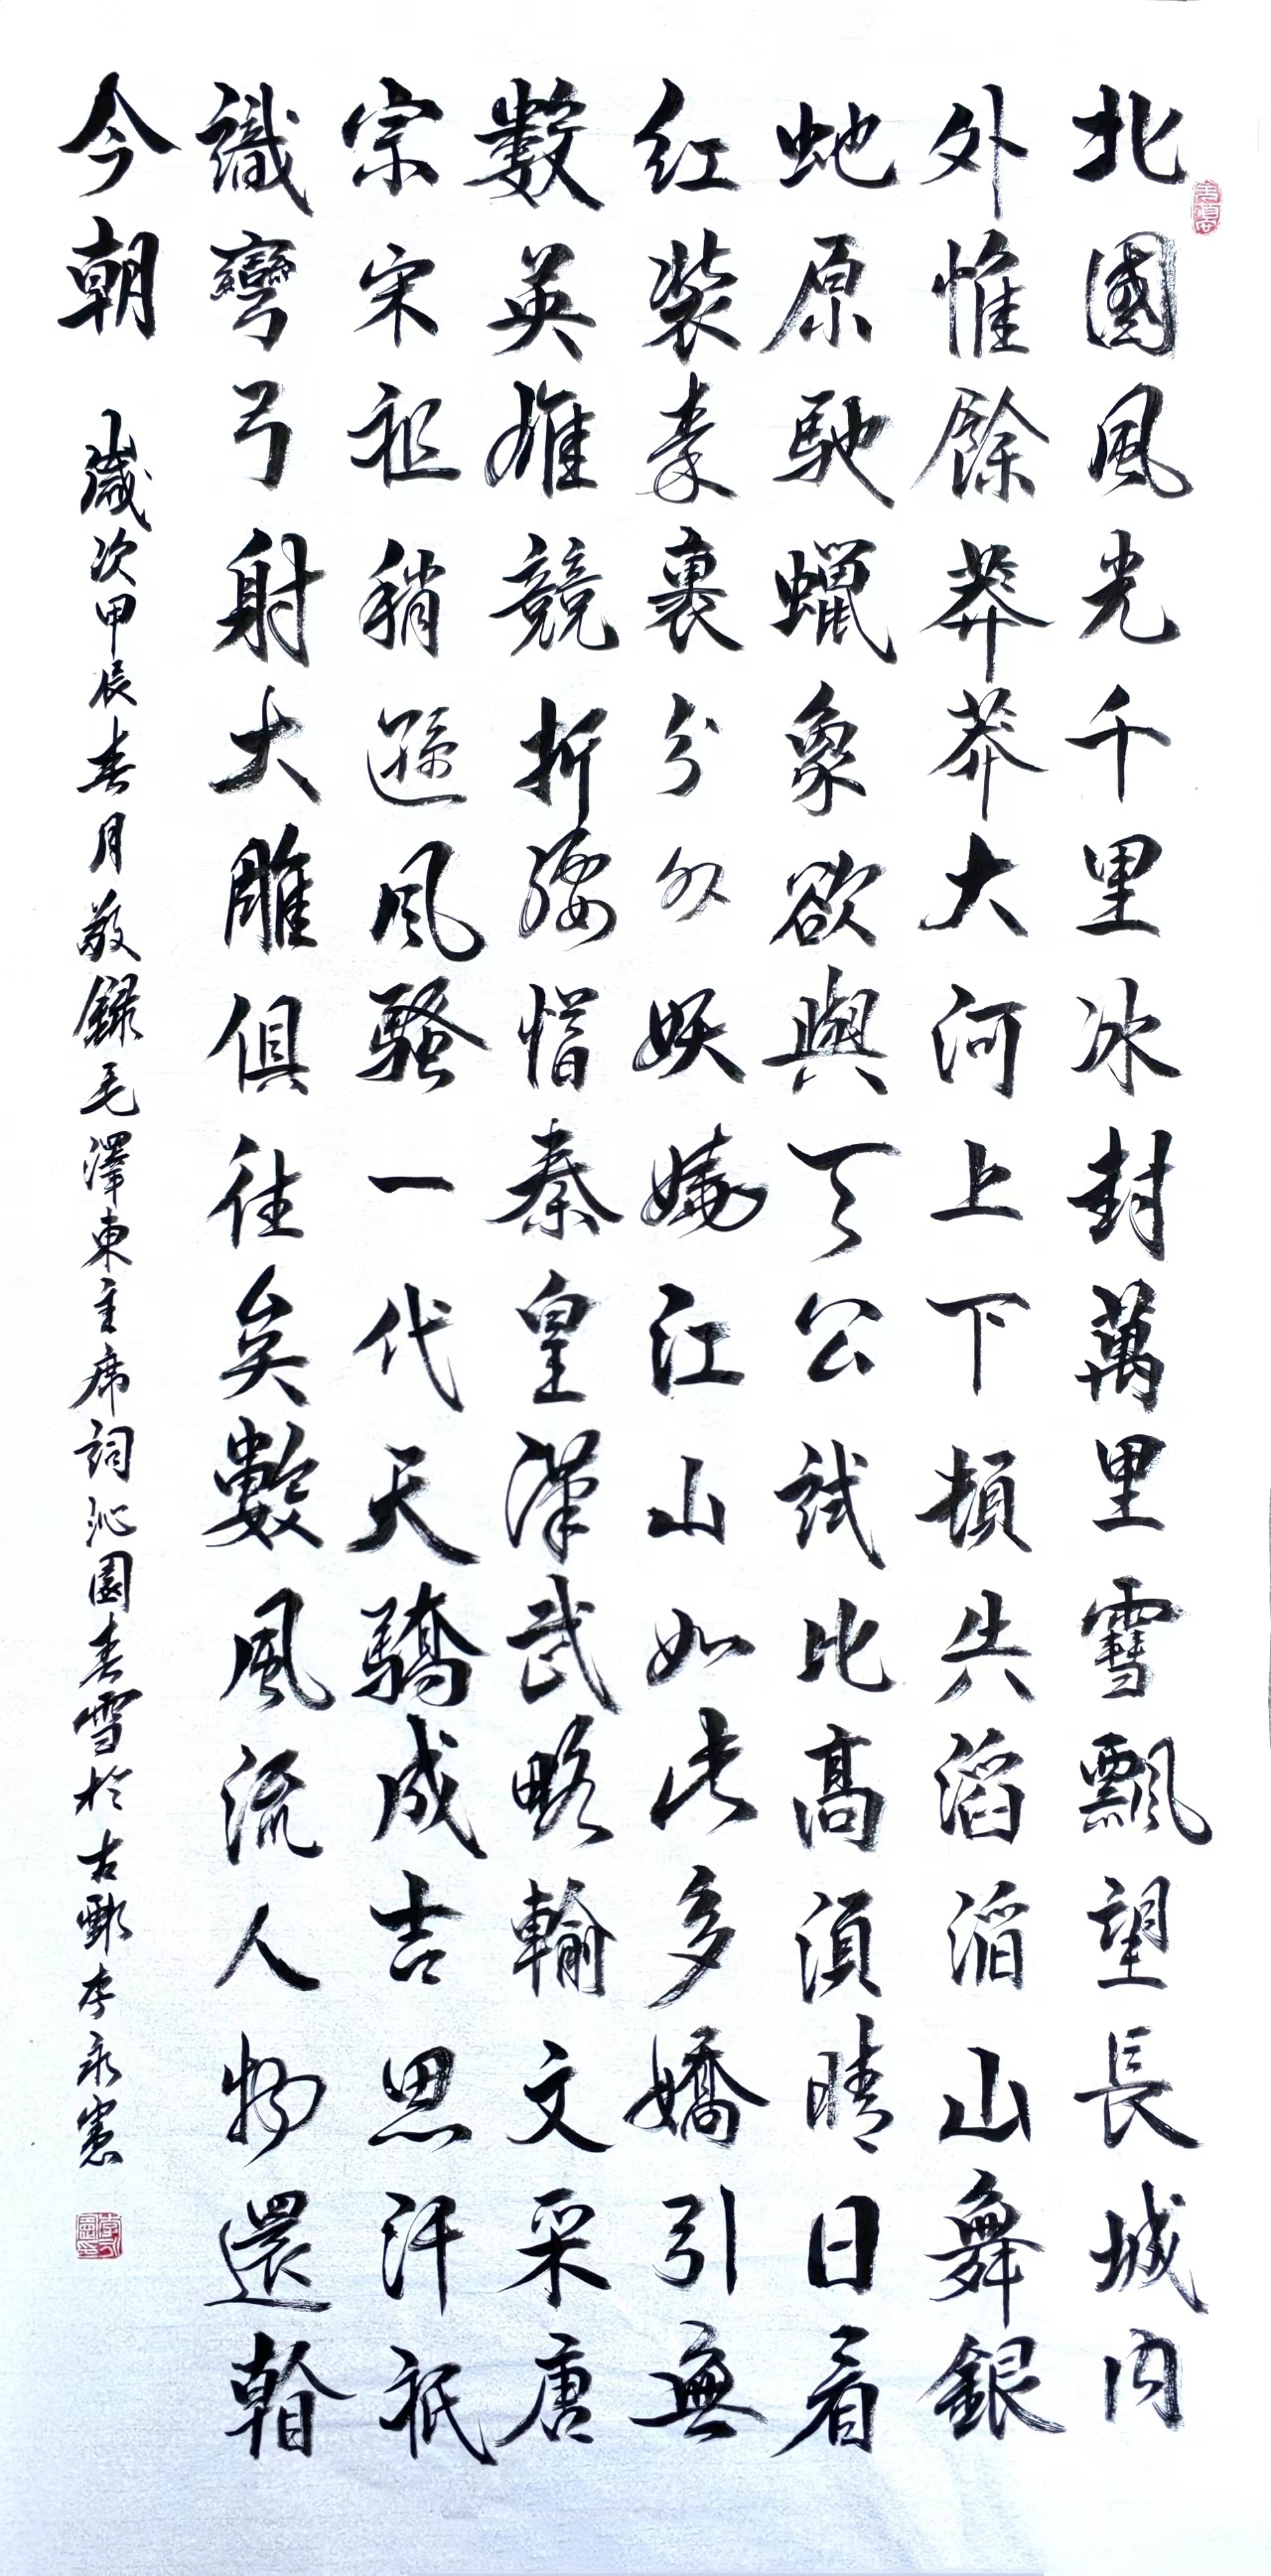 北國風光千里冰封萬里雪飄望長城內
外惟餘莽莽大河上下頓失滔滔山舞銀
虵原馳蠟象欲與天公試比高須晴日看
紅裝素裹分外妖嬈江山如此多嬌引無
數英雄競折腰惜秦皇漢武略輸文采唐
宗宋祖稍遜風騷一代天驕成吉思汗祇
識彎弓射大雕俱往矣數風流人物還看
今朝
歲次甲辰春月敬錄毛澤東主席詞沁園春雪於古鄄李永憲